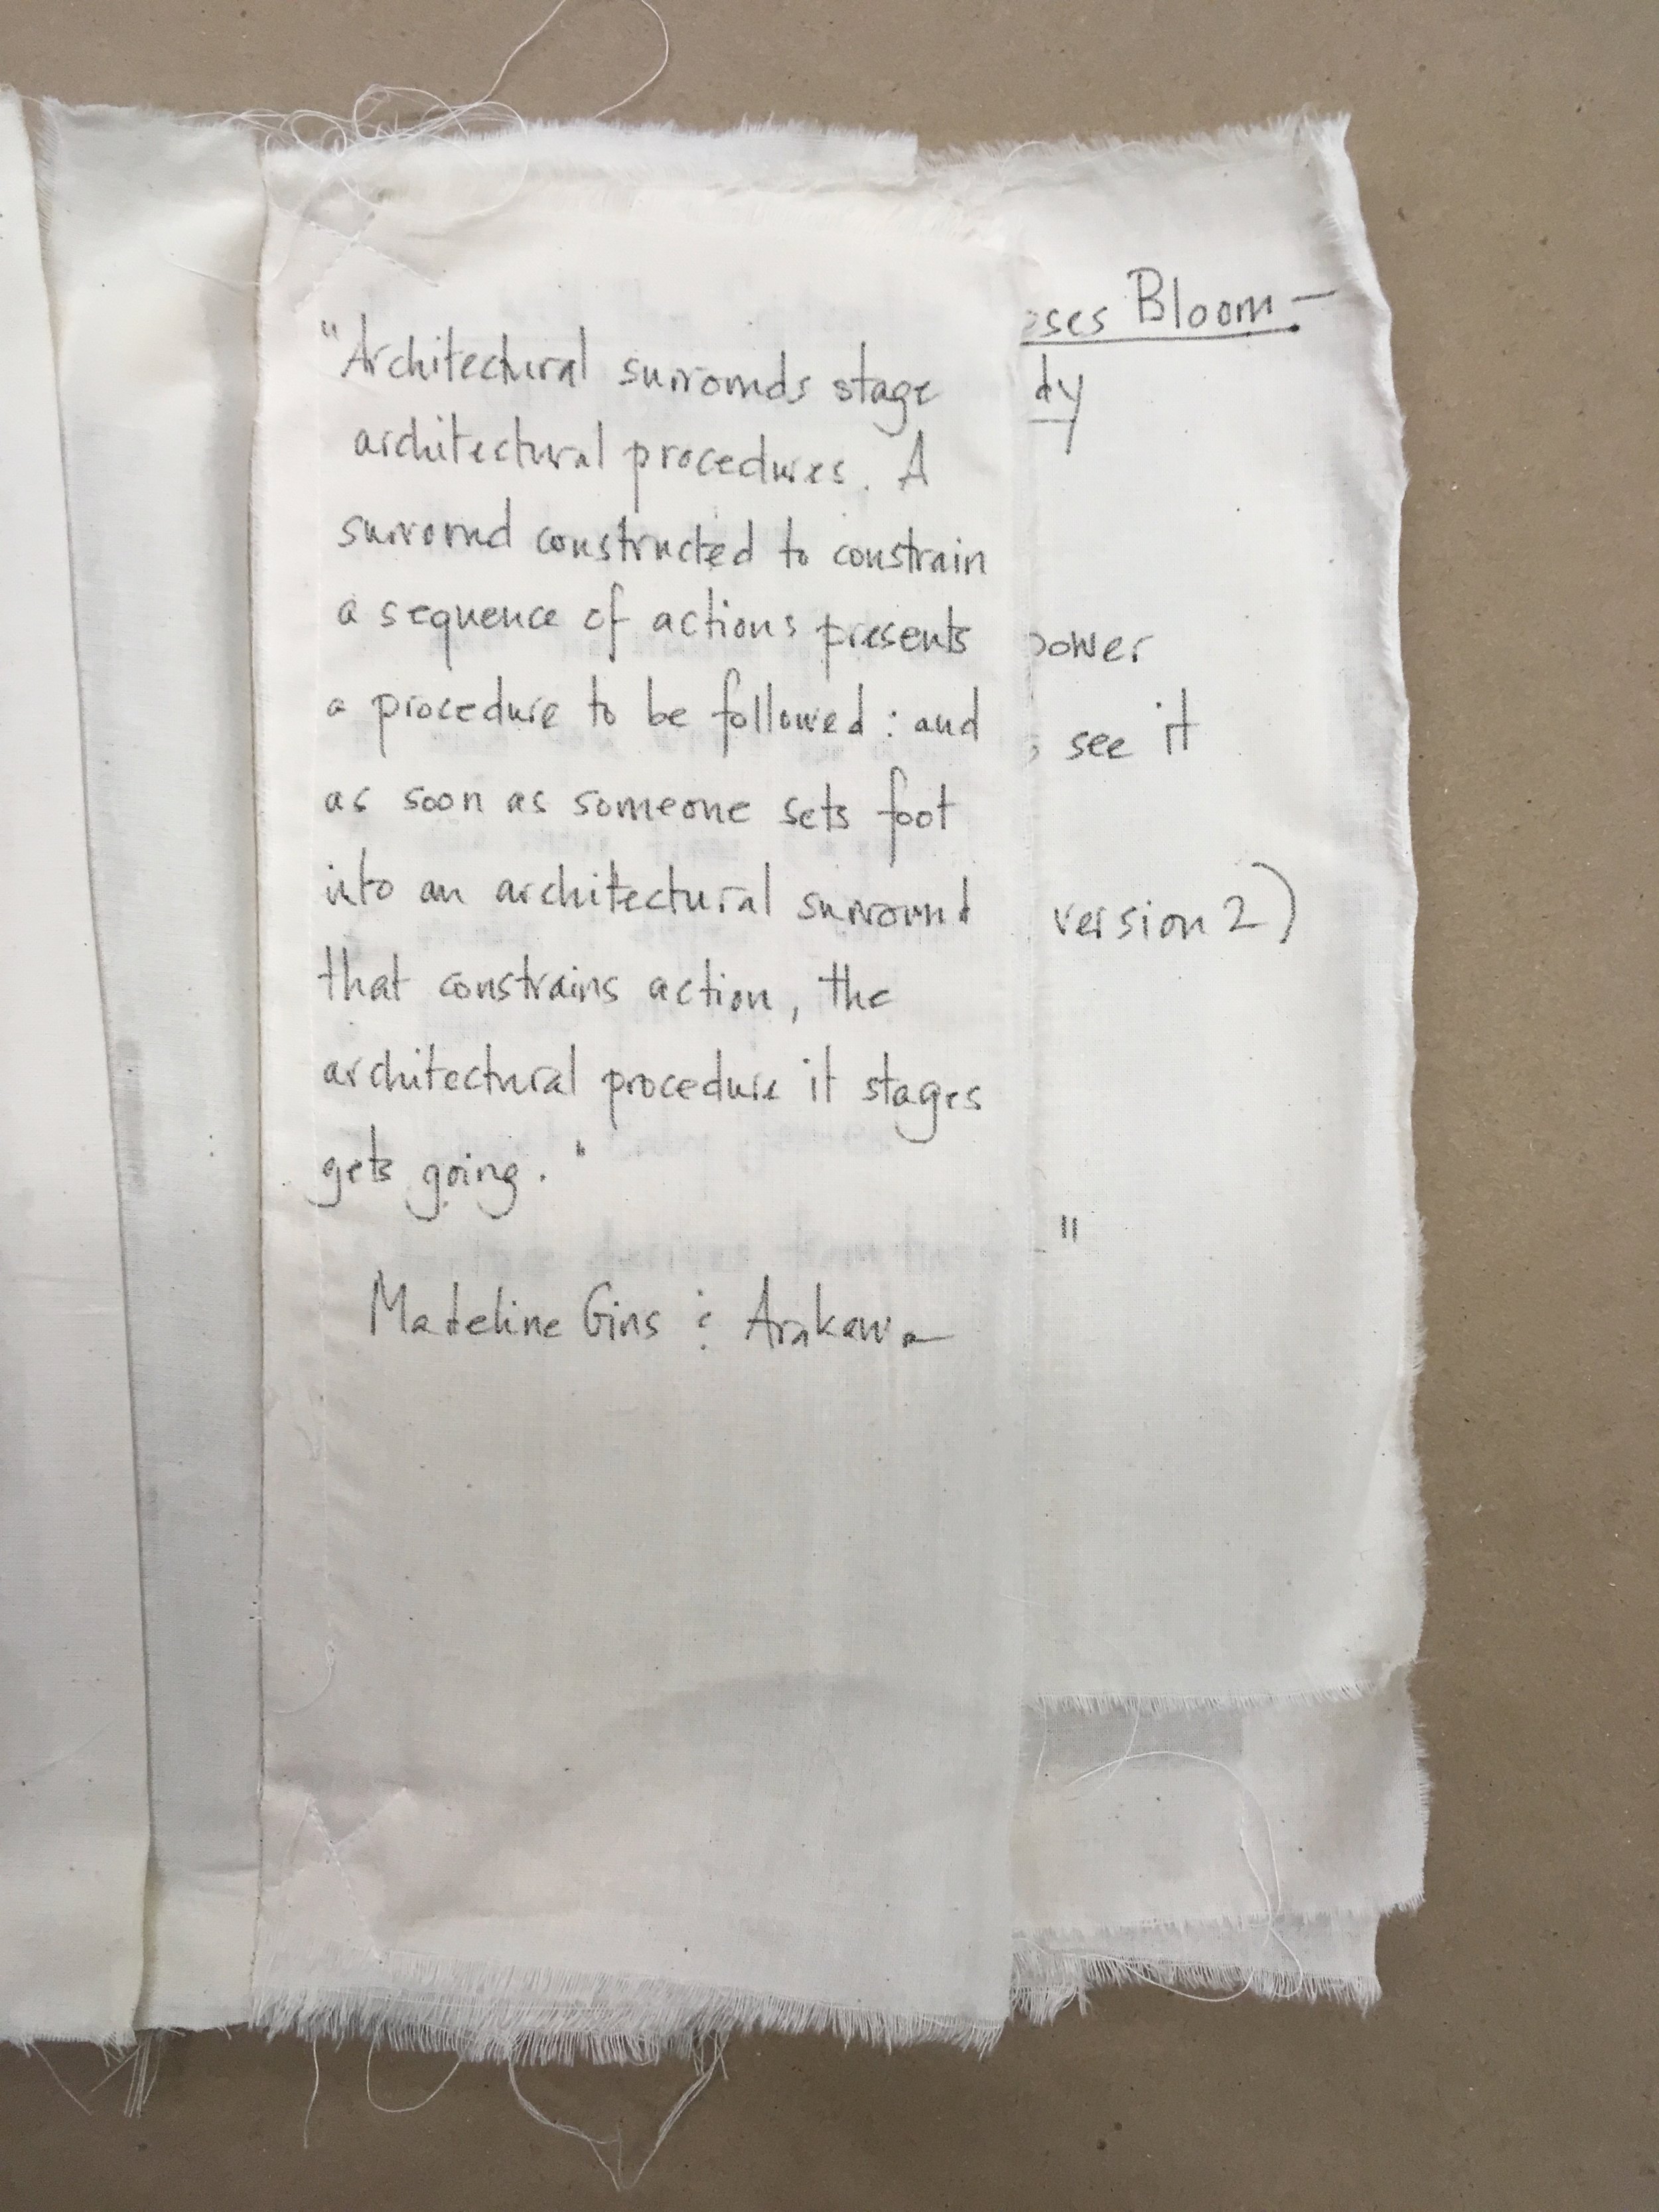 "Architectural surrounds stage
architectural procedures. A
surround constructed to constrain
a sequence of actions presents
a procedure to be followed: and
as soon as someone sets foot
into an architectural surround
that constrains action, the
architectural procedure it stages
gets going."
Madeline Gins & Arakawa
oses Bloom —
dy
power
s see it
version 2)
"